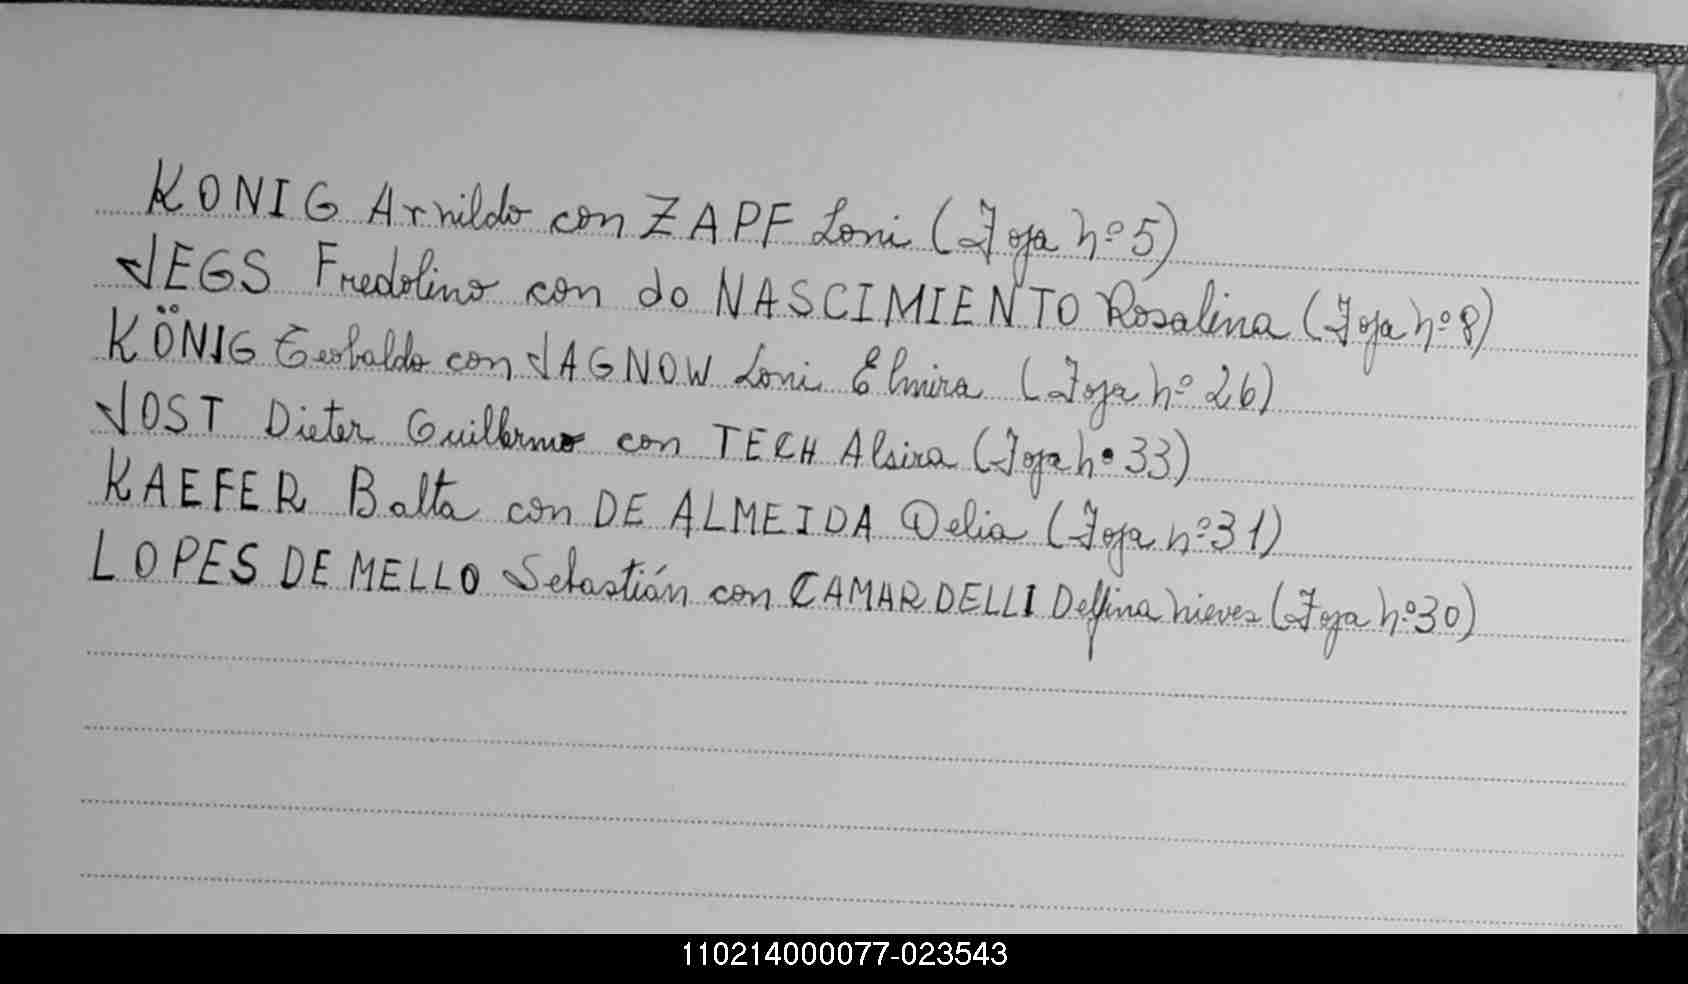 KONIG Arnildo con ZAPF Loni (Foja nº 5)
JEGS Fredolino con do NASCIMIENTO Rosalina (Foja nº 8)
KÖNIG Teobaldo con JAGNOW Loni Elmira (Foja nº 26)
JOST Dieter Guillermo con TECH Alsira (Foja nº 33)
KAEFER Balta con DE ALMEIDA Delia (Foja nº 31)
LOPES DE MELLO Sebastián con CAMARDELLI Delfina Nieves (Foja nº 30)
110214000077-023543